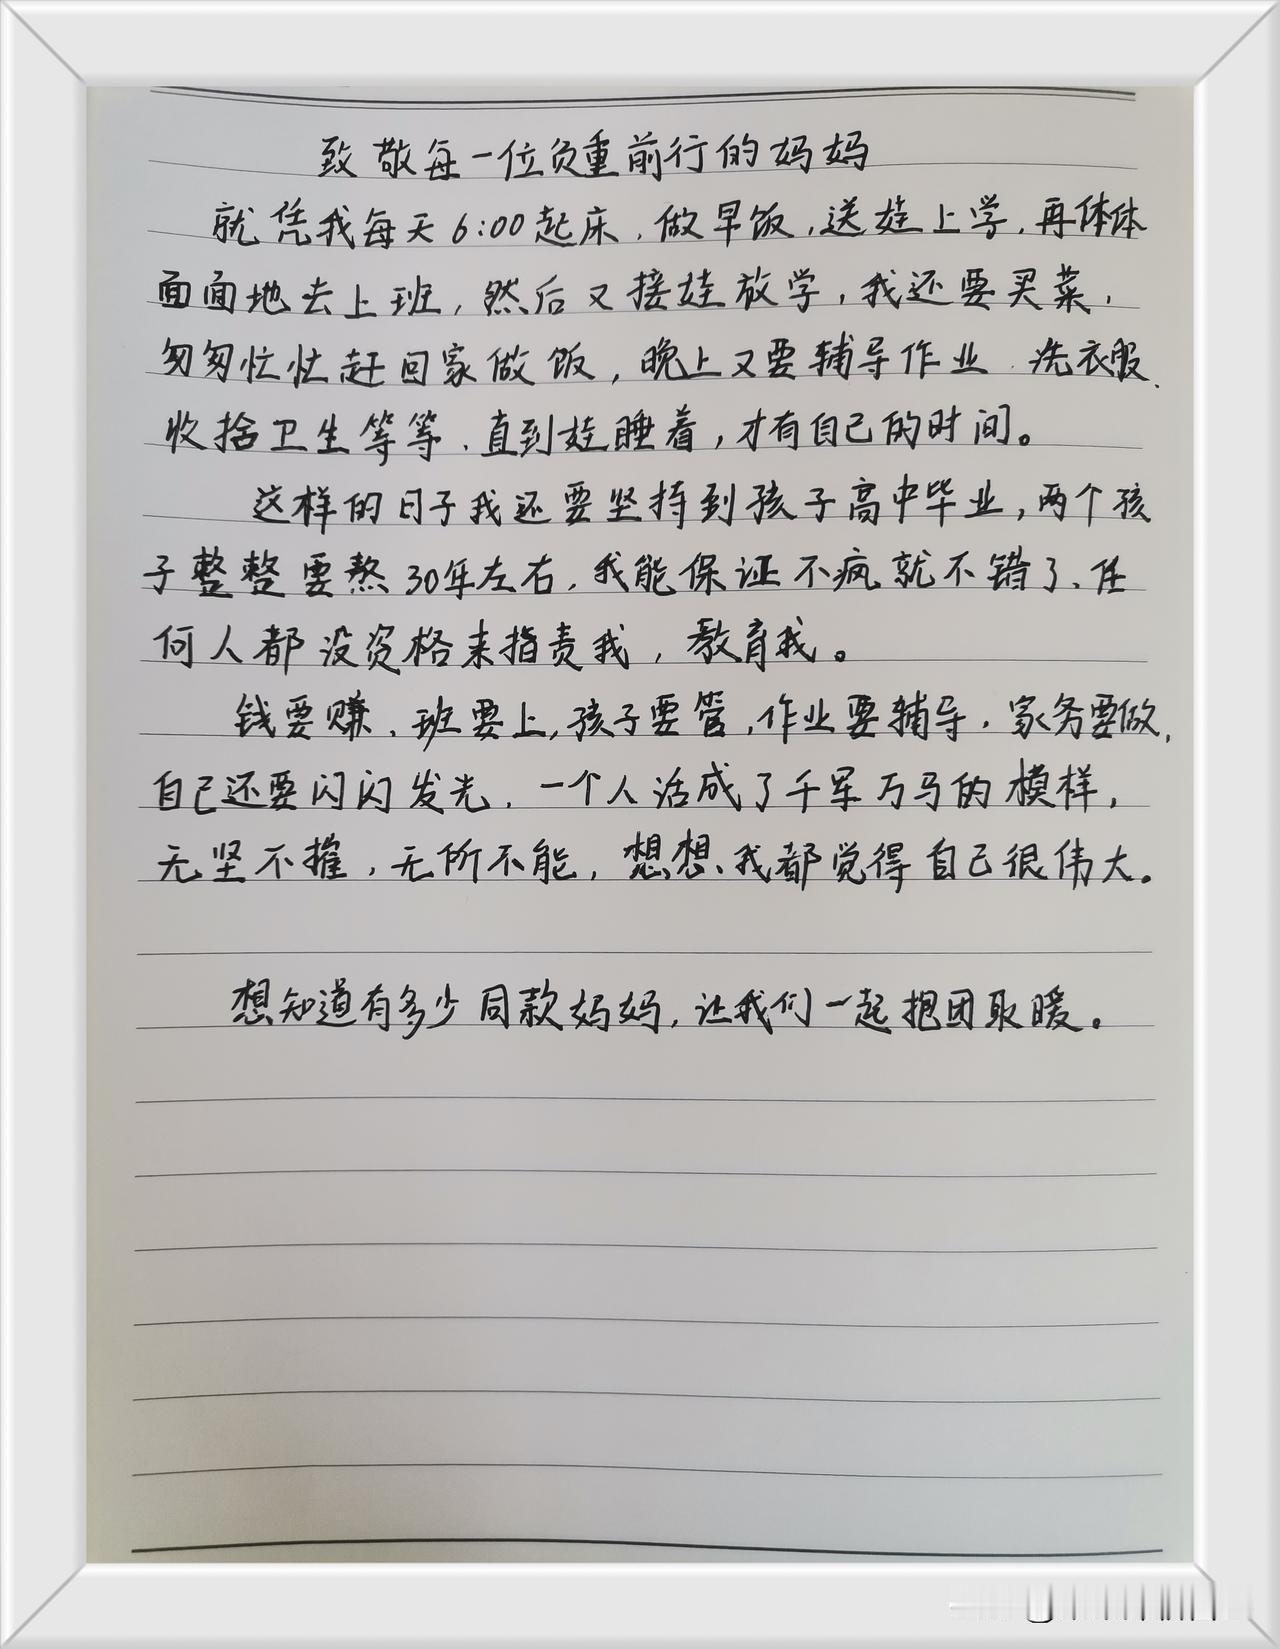 致敬每一位负重前行的妈妈
就凭我每天6:00起床,做早饭,送娃上学,再体体
面面地去上班,然后又接娃放学,我还要买菜,
匆匆忙忙赶回家做饭,晚上又要辅导作业、洗衣服、
收拾卫生等等、直到娃睡着,才有自己的时间。
这样的日子我还要坚持到孩子高中毕业,两个孩
子整整要熬30年左右,我能保证不疯就不错了、任
何人都没资格来指责我,教育我。
钱要赚、班要上,孩子要管,作业要辅导,家务要做,
自己还要闪闪发光,一个人活成了千军万马的模样,
无坚不摧,无所不能,想想、我都觉得自己很伟大。
想知道有多少同款妈妈,让我们一起抱团取暖。